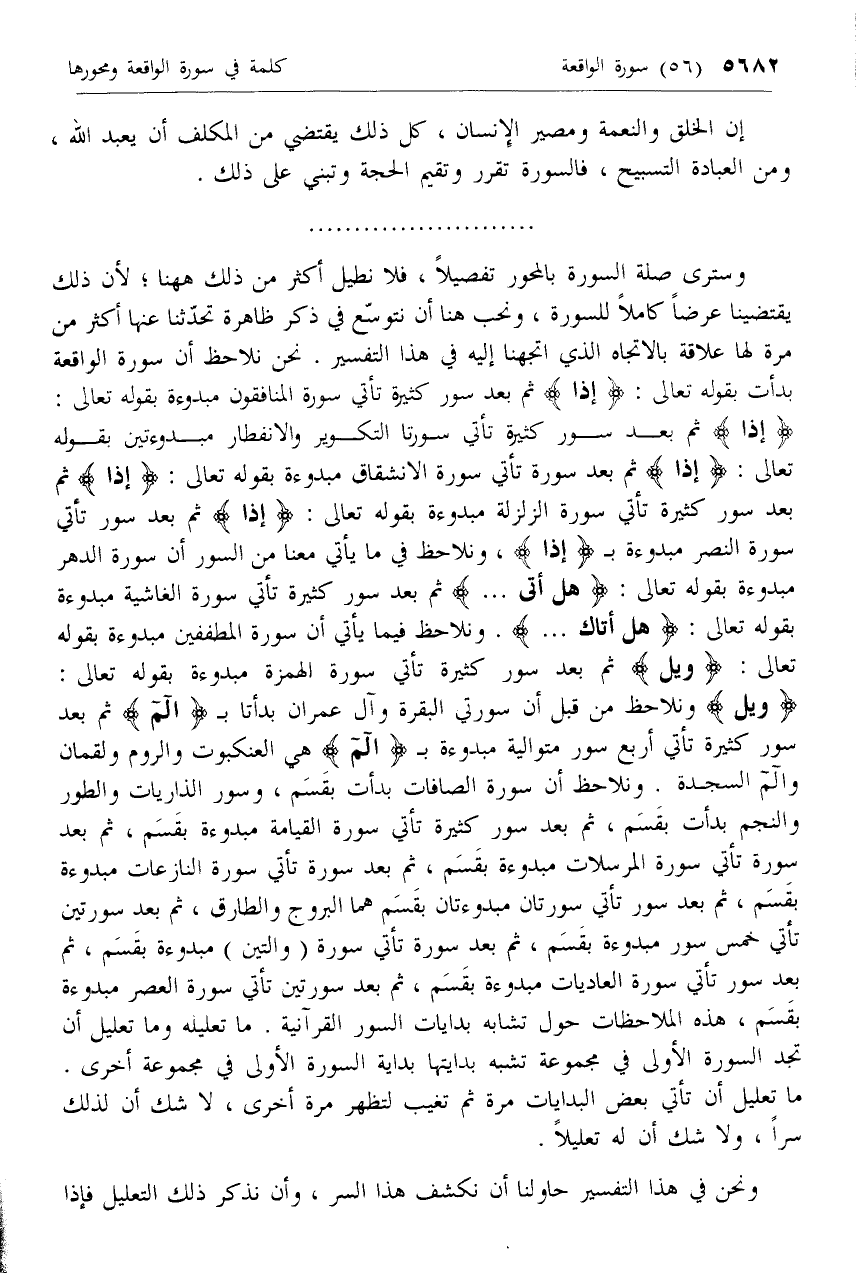 ٥٦٨٢ (٥٦) سورة الواقعة كلمة في سورة الواقعة ومحورها
إن الخلق والنعمة ومصير الإنسان ، كل ذلك يقتضي من المكلف أن يعبد الله ،
ومن العبادة التسبيح ، فالسورة تقرر وتقيم الحجة وتبني على ذلك .
.........................
وسترى صلة السورة بالمحور تفصيلاً ، فلا نطيل أكثر من ذلك ههنا ؛ لأن ذلك
يقتضينا عرضاً كاملاً للسورة ، ونحب هنا أن نتوسّع في ذكر ظاهرة تحدّثنا عنها أكثر من
مرة لها علاقة بالاتجاه الذي اتجهنا إليه في هذا التفسير . نحن نلاحظ أن سورة الواقعة
بدأت بقوله تعالى : ﴿ إذا ﴾ ثم بعد سور كثيرة تأتي سورة المنافقون مبدوءة بقوله تعالى :
﴿ إذا ﴾ ثم بعـــد ســـور كثيرة تأتي سـورتا التكـــوير والانفطار مبـــدوءتين بقـــوله
تعالى : ﴿ إذا ﴾ ثم بعد سورة تأتي سورة الانشقاق مبدوءة بقوله تعالى : ﴿ إذا ﴾ ثم
بعد سور كثيرة تأتي سورة الزلزلة مبدوءة بقوله تعالى : ﴿ إذا ﴾ ثم بعد سور تأتي
سورة النصر مبدوءة بـ ﴿ إذا ﴾ ، ونلاحظ في ما يأتي معنا من السور أن سورة الدهر
مبدوءة بقوله تعالى : ﴿ هل أتى ... ﴾ ثم بعد سور كثيرة تأتي سورة الغاشية مبدوءة
بقوله تعالى : ﴿ هل أتاك ... ﴾ . ونلاحظ فيما يأتي أن سورة المطففين مبدوءة بقوله
تعالى : ﴿ ويل ﴾ ثم بعد سور كثيرة تأتي سورة الهمزة مبدوءة بقوله تعالى :
﴿ ويل ﴾ ونلاحظ من قبل أن سورتي البقرة وآل عمران بدأتا بـ ﴿ الٓمٓ ﴾ ثم بعد
سور كثيرة تأتي أربع سور متوالية مبدوءة بـ ﴿ الٓمٓ ﴾ هي العنكبوت والروم ولقمان
والٓمٓ السجدة . ونلاحظ أن سورة الصافات بدأت بقَسَم ، وسور الذاريات والطور
والنجم بدأت بقَسَم ، ثم بعد سور كثيرة تأتي سورة القيامة مبدوءة بقَسَم ، ثم بعد
سورة تأتي سورة المرسلات مبدوءة بقَسَم ، ثم بعد سورة تأتي سورة النازعات مبدوءة
بقَسَم ، ثم بعد سور تأتي سورتان مبدوءتان بقَسَم هما البروج والطارق ، ثم بعد سورتين
تأتي خمس سور مبدوءة بقَسَم ، ثم بعد سورة تأتي سورة ( والتين ) مبدوءة بقَسَم ، ثم
بعد سور تأتي سورة العاديات مبدوءة بقَسَم ، ثم بعد سورتين تأتي سورة العصر مبدوءة
بقَسَم ، هذه الملاحظات حول تشابه بدايات السور القرآنية . ما تعليله وما تعليل أن
تجد السورة الأولى في مجموعة تشبه بدايتها بداية السورة الأولى في مجموعة أخرى .
ما تعليل أن تأتي بعض البدايات مرة ثم تغيب لتظهر مرة أخرى ، لا شك أن لذلك
سراً ، ولا شك أن له تعليلاً .
ونحن في هذا التفسير حاولنا أن نكشف هذا السر ، وأن نذكر ذلك التعليل فإذا